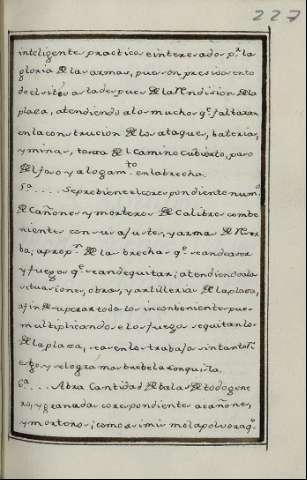 227
inteligentes practicos e interesados pr. la
gloria de las armas, pues son presisos ento
de el sitio antes despues de la Rendision de la
plaza, atendiendo alos muchos qe. faltaran
en la construcion de los ataques, baterias,
y minas, toma del Camino Cubierto, paso
del foso y alogamto. en la brecha.
5a.... Se prebiene el correspondiente numo.
de Cañones y morteros de Calibre combe
niente con sus afustes, y armas de
ba; apropn. de las brechas qe. se ande
y fuegos qe. se an de quitar; atendiendo a la
situasiones, obras, y artilleria de la plaza,
afin de superar todo los incombenientes pues
multiplicando elos fuegos se quitan los
de la plaza, sean los trabajos sin tanto
y se logra mas brebe la conquista.
6a.... Abra Cantidad de balas de todo gene
ro, y granadas correspondientes a cañones,
y morteros; como asimismo la polvora qe.